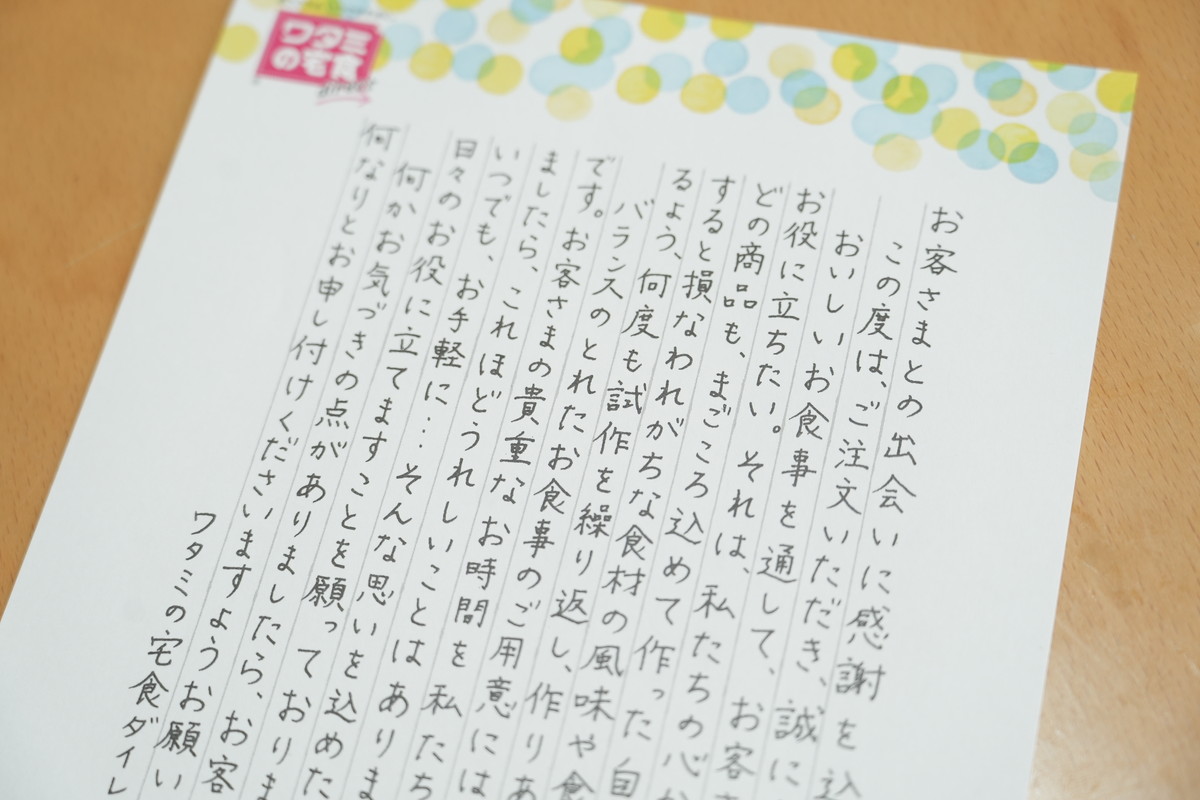 ワタミ
の宅食
dinner
お客さまとの出会いに感謝を込
この度は、ご注文いただき、誠に
おいしいお食事を通して、お客
お役に立ちたい。それは、私たちの心か
どの商品も、まごころ込めて作った自
すると損なわれがちな食材の風味や食
るよう、何度も試作を繰り返し、作りあ
バランスのとれたお食事のご用意には
です。お客さまの貴重なお時間を私たち
ましたら、これほどうれしいことはありま
いつでも、お手軽に…そんな思いを込めた
日々のお役に立てますことを願っておりま
何かお気づきの点がありましたら、お客
何なりとお申し付けくださいますようお願い
ワタミの宅食ダイレ